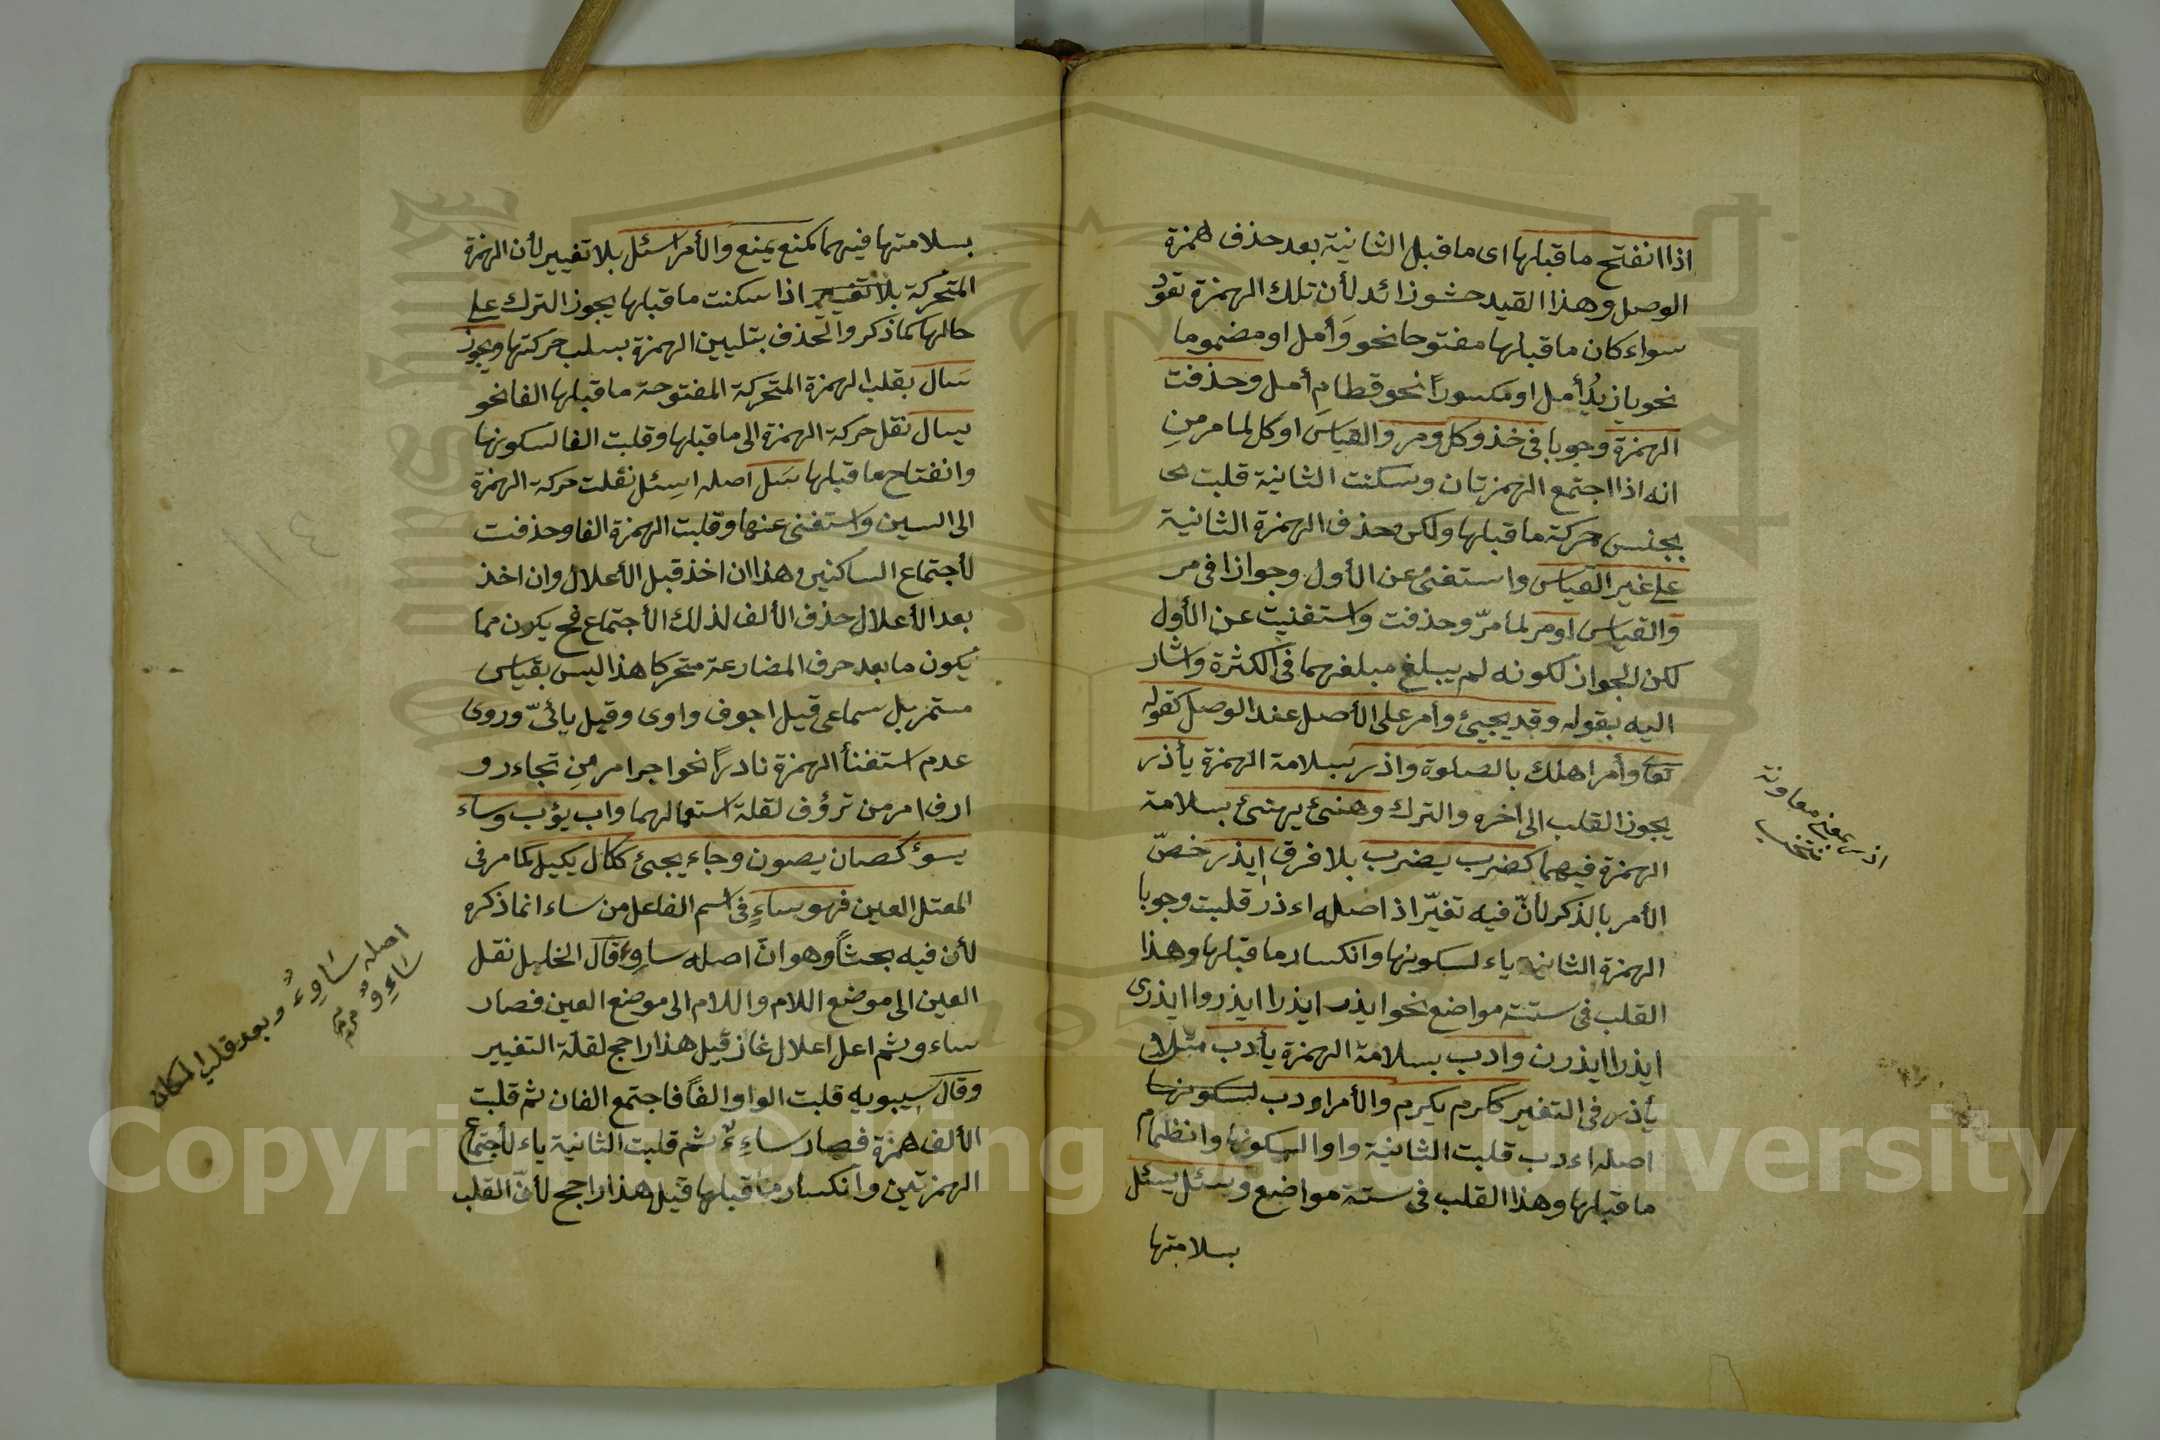 اذا انفتح ما قبلها اى ما قبل الثانية بعد حذف همزة
الوصل وهذا القيد حشو زائد لأن تلك الهمزة تعود
سواء كان ما قبلها مفتوحا نحو وَأمل او مضموما
نحو يا زيدُ أمل او مكسورًا نحو قطام أمل وحذفت
الهمزة وجوبا فى خذ وكل ومر والقياس اوكل لما مر من
انه اذا اجتمع الهمزتان وسكنت الثانية قلبت
بجنس حركة ما قبلها ولكن حذف الهمزة الثانية
على غير القياس واستغنى عن الأول وجوازا فى مر
والقياس اومر لما مرّ وحذفت واستغنيت عن الأول
لكن الجواز لكونه لم يبلغ مبلغهما فى الكثرة واشار
اليه بقوله وقد يجيئ وأمر على الأصل عند الوصل كقوله
تعالى وأمر اهلك بالصلوة واذر بسلامة الهمزة يأذر
يجوز القلب الى أخره والترك وهنئ يهنئ بسلامة
الهمزة فيهما كضرب يضرب بلا فرق ايذر خصّ
الأمر بالذكر لأنّ فيه تغيّر اذ اصله اءذر قلبت وجوبا
الهمزة الثانية ياء لسكونها وانكسار ما قبلها وهذا
القلب فى ستة مواضع نحو ايذر ايذرا ايذروا ايذرى
ايذرا ايذرن وادب بسلامة الهمزة يأدب مثلا
يأذر فى التغير ككرم يكرم والأمر اودب لسكونها
اصله اءدب قلبت الثانية واوا لسكونها وانظمام
ما قبلها وهذا القلب فى ستة مواضع وسئل يسئل
بسلامتها
بسلامتها فيهما كمنع يمنع والأمر اسئل بلا تغيير لأن الهمزة
المتحركة بلا تغيير اذا سكنت ما قبلها يجوز الترك على
حالها كما ذكر والحذف بتليين الهمزة بسلب حركتها ويجوز
سَال بقلب الهمزة المتحركة المفتوحة ما قبلها الفا نحو
يسال نقل حركة الهمزة الى ما قبلها وقلبت الفا لسكونها
وانفتاح ما قبلها سَل اصله اسئل نقلت حركة الهمزة
الى السين واستغنى عنها وقلبت الهمزة الفا وحذفت
لأجتماع الساكنين وهذا ان اخذ قبل الأعلال وان اخذ
بعد الأعلال حذف الألف لذلك الأجتماع فح يكون مما
يكون ما بعد حرف المضارعة متحركا هذا ليس بقياس
مستمر بل سماعى قيل اجوف واوى وقيل يائىّ وروى
عدم استغنأ الهمزة نادرًا نحو اجرا مر من تجاءر و
ارف امر من ترؤف لقلة استعمالهما واب يؤب وساء
يسوء كصان يصون وجاء يجئ ككال يكيل كما مر فى
المعتل العين فهو ساءٍ فى اسم الفاعل من ساء انما ذكره
لأن فيه بحثاً وهو انّ اصله ساوِء قال الخليل نقل
العين الى موضع اللام واللام الى موضع العين فصار
ساءو ثم اعل اعلال غاز قيل هذا راجح لقلة التغيير
وقال سيبويه قلبت الواو الفاً فاجتمع الفان ثم قلبت
الألف همزة فصار ساءِءٌ ثم قلبت الثانية ياء لأجتماع
الهمزتين وانكسار ما قبلها قيل هذا راجح لأنّ القلب
اصله سَاوِءٌ وبعد قلب المكان
سَاءِوٌ
Copyright © King Saud University
1957